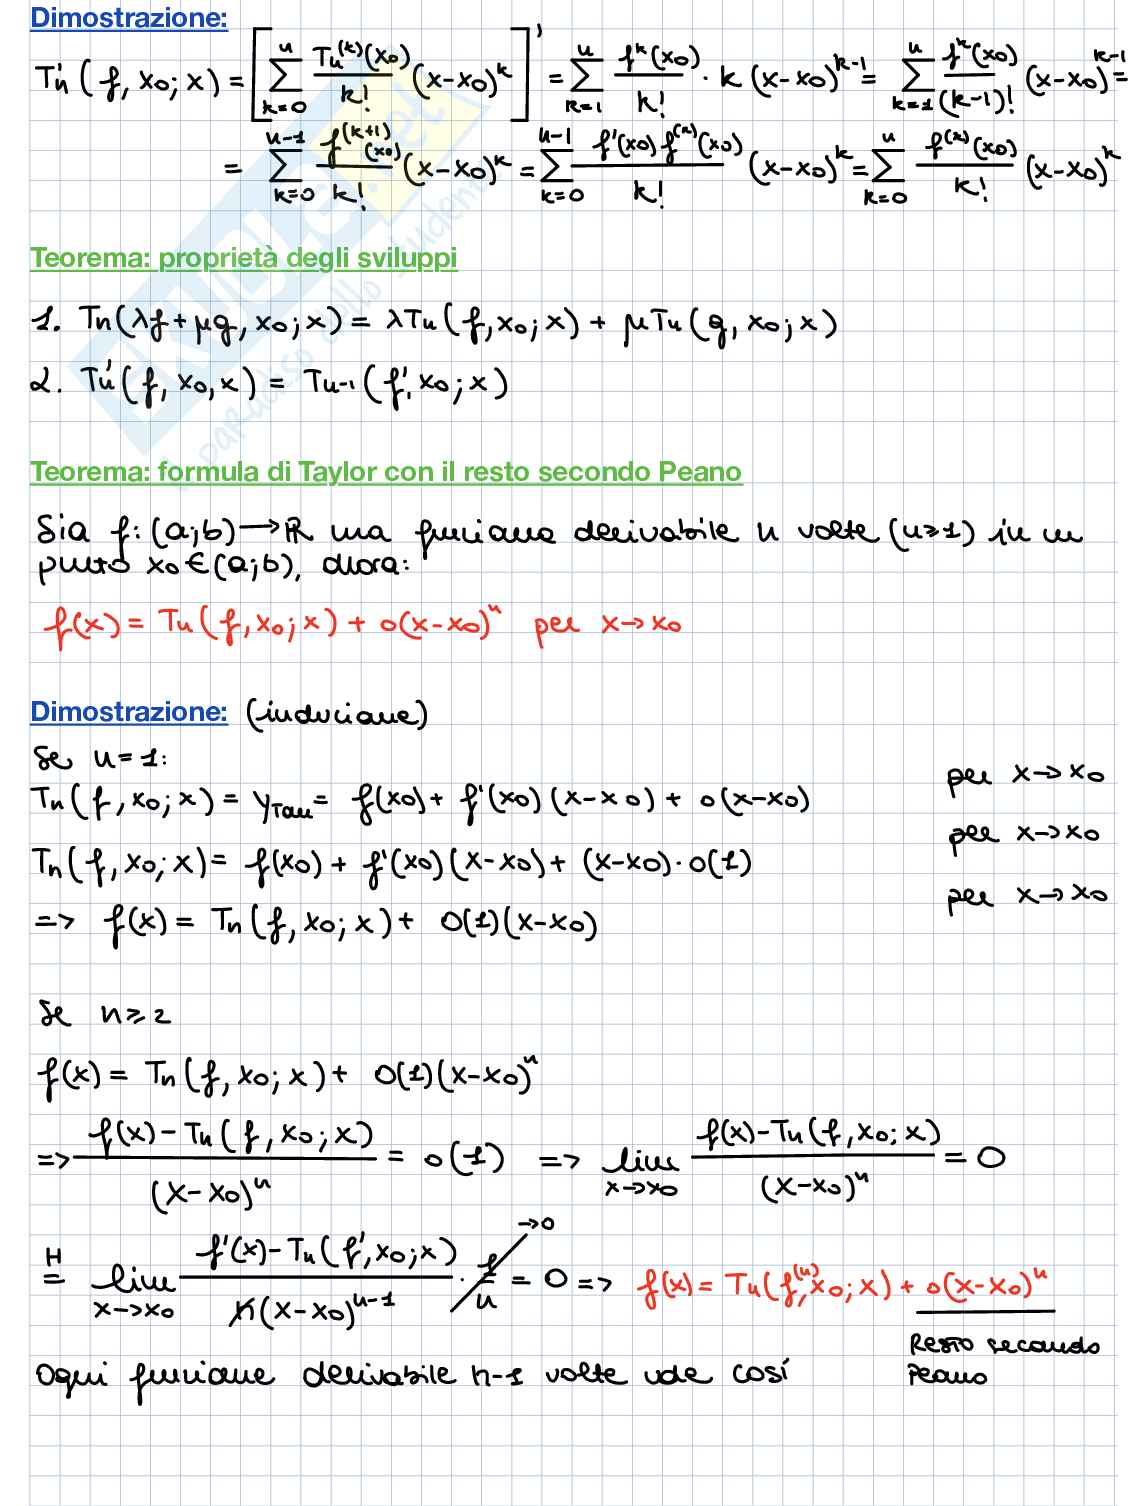 Dimostrazione:
Tn'(f, x0; x) = [∑_{k=0}^{n} Tn^{(k)}(x0)/k! (x-x0)^k]' = ∑_{k=1}^{n} f^k(x0)/k! · k (x-x0)^{k-1} = ∑_{k=1}^{n} f^k(x0)/(k-1)! (x-x0)^{k-1} =
= ∑_{k=0}^{n-1} f^{(k+1)}(x0)/k! (x-x0)^k = ∑_{k=0}^{n-1} f'(x0) f^{(k)}(x0)/k! (x-x0)^k = ∑_{k=0}^{n} f^{(k)}(x0)/k! (x-x0)^k
Teorema: proprietà degli sviluppi
1. Tn(λf + μg, x0; x) = λTn(f, x0; x) + μTn(g, x0; x)
2. Tn'(f, x0, x) = Tn-1(f', x0; x)
Teorema: formula di Taylor con il resto secondo Peano
Sia f: (a;b) → ℝ una funzione derivabile n volte (n≥1) in un
punto x0 ∈ (a;b), allora:
f(x) = Tn(f, x0; x) + o(x-x0)^n per x→x0
Dimostrazione: (induzione)
Se n=1:
Tn(f, x0; x) = yTan = f(x0) + f'(x0)(x-x0) + o(x-x0) per x→x0
Tn(f, x0; x) = f(x0) + f'(x0)(x-x0) + (x-x0)·o(1) per x→x0
=> f(x) = Tn(f, x0; x) + o(1)(x-x0) per x→x0
Se n≥2
f(x) = Tn(f, x0; x) + o(1)(x-x0)^n
=> f(x)-Tn(f, x0; x)/(x-x0)^n = o(1) => lim_{x→x0} f(x)-Tn(f, x0; x)/(x-x0)^n = 0
=^H lim_{x→x0} f'(x)-Tn(f', x0; x)/n(x-x0)^{n-1} · f/n →0 = 0 => f(x) = Tn(f^{(n)}, x0; x) + o(x-x0)^n
Resto secondo
Peano
Ogni funzione derivabile n-1 volte vale così